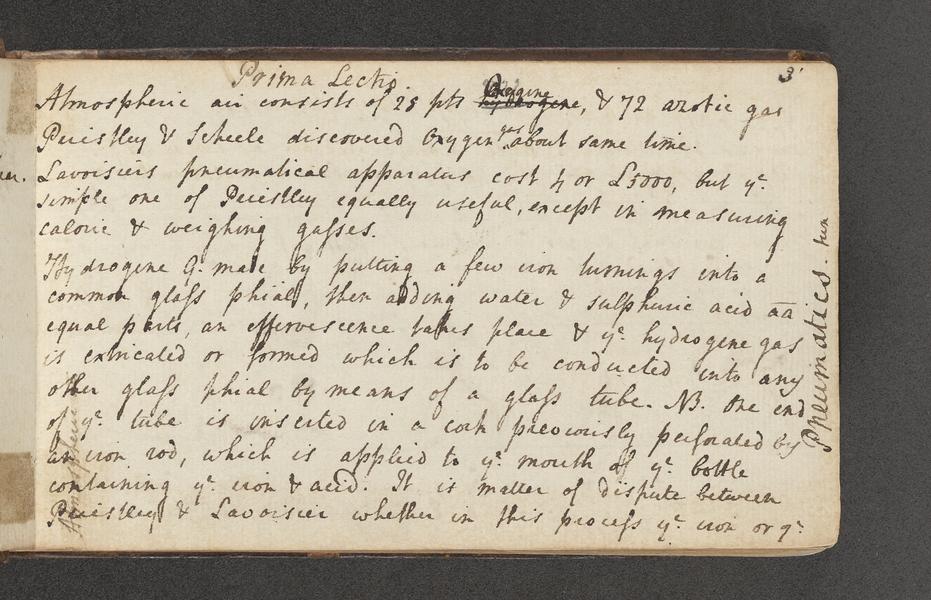 3
Prima Lectio.
Oxygine
Atmospheric air consists of 28 pts hydrogene, & 72 azotic gas
Preistley & Scheele discovered Oxygen gas about same time.
Lavoisiers pneumatical apparatus cost 4 or £5000, but yͤ.
simple one of Preistley equally useful, except in measuring
caloric & weighing gasses.
Hydrogene G. made by putting a few iron turnings into a
common glass phial, then adding water & sulphuric acid aa
equal parts, an effervescence takes place & yͤ. hydrogene gas
is extricated or formed which is to be conducted into any
other glass phial by means of a glass tube. NB. One end
of yͤ. tube is inserted in a cork previously perforated by
an iron rod, which is applied to yͤ. mouth of yͤ. bottle
containing yͤ. iron & acid. It is matter of dispute between
Preistley & Lavoisier whether in this process yͤ. iron or yͤ.
Pneumatics.